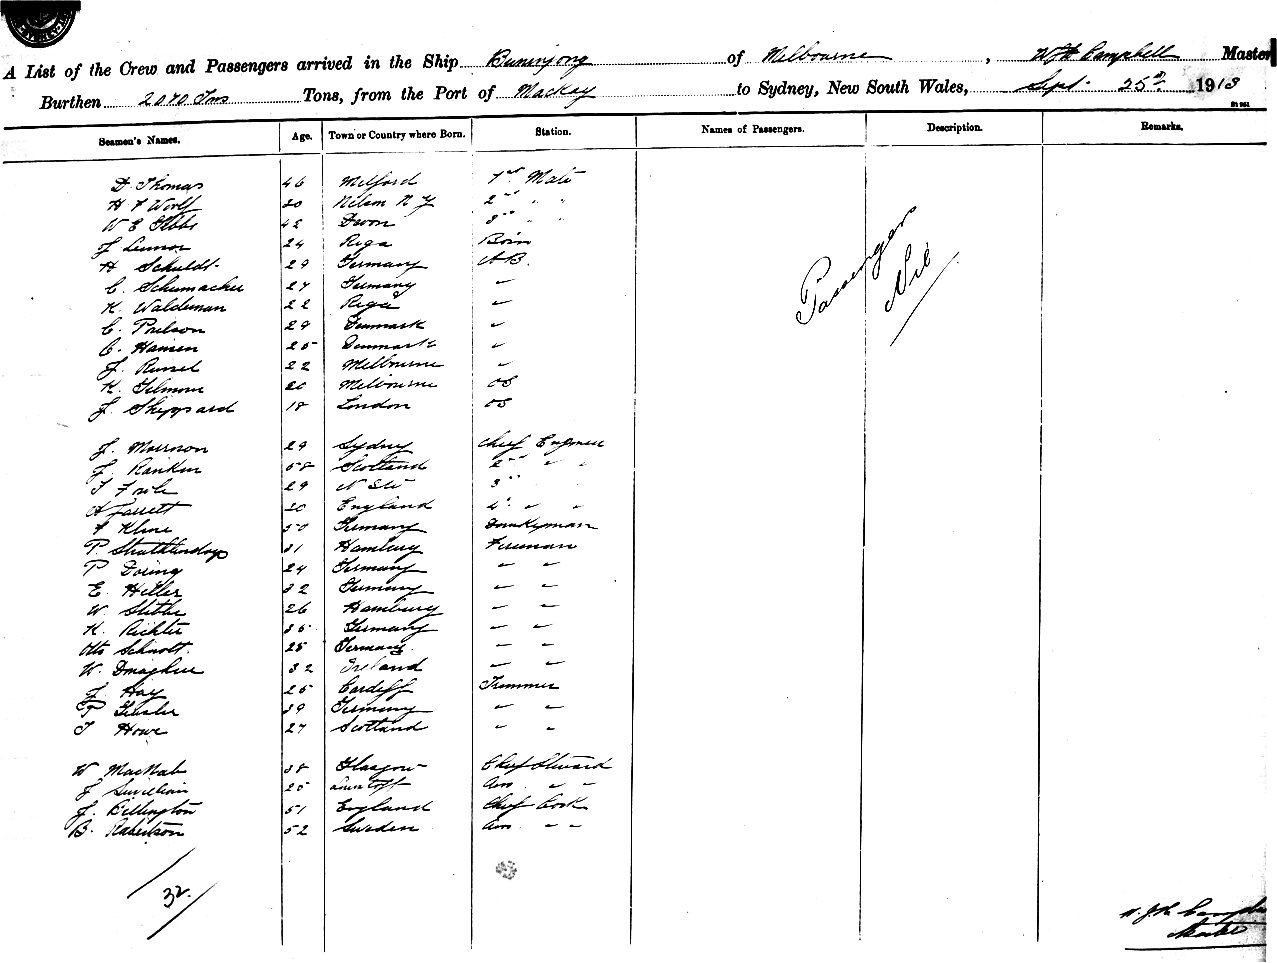 A List of the Crew and Passengers arrived in the Ship Buninyong of Melbourne, W J H Campbell Master
Burthen 2070 Tns Tons, from the Port of Mackay to Sydney, New South Wales, Sept 25th 1913
Seamen's Names. Age. Town or Country where Born. Station. Names of Passengers. Description. Remarks.
D. Thomas 46 Milford 1st Mate
H F Wolf 30 Nelson N Z 2nd " "
W E Gibbs 42 Devon 3rd " "
J Lennox 24 Riga Bosn
H Schuldt 29 Germany A.B.
C. Schumacher 27 Germany "
K. Waldeman 22 Riga "
C. Poulson 29 Denmark "
C. Hansen 25 Denmark "
J. Russel 22 Melbourne "
K. Gilmore 20 Melbourne OS
J. Sheppard 18 London OS
Passenger
Nil
J. Morrison 29 Sydney Chief Engineer
J. Rankin 58 Scotland 2nd " "
T 29 N S W 3rd
A Jarrett 30 England 4th " "
F Kline 50 Germany Donkeyman
P. 31 Hamburg Fireman
P Doring 24 Germany " "
E. Hiller 32 Germany " "
W. 26 Hamburg " "
K. Richter 35 Germany " "
Otto Schmolt. 25 Germany. " "
W. Donaghue 32 Ireland " "
J. Hay 25 Cardiff Trimmer
P Geisler 39 Germany " "
T Howe 27 Scotland " "
W MacNab 38 Glasgow Chief Steward
J 25 Lowestoft Ass. " "
J. Billington 51 England Chief Cook
B. Robertson 52 Sweden Ass. " "
32
W. J. H. Campbell
Master